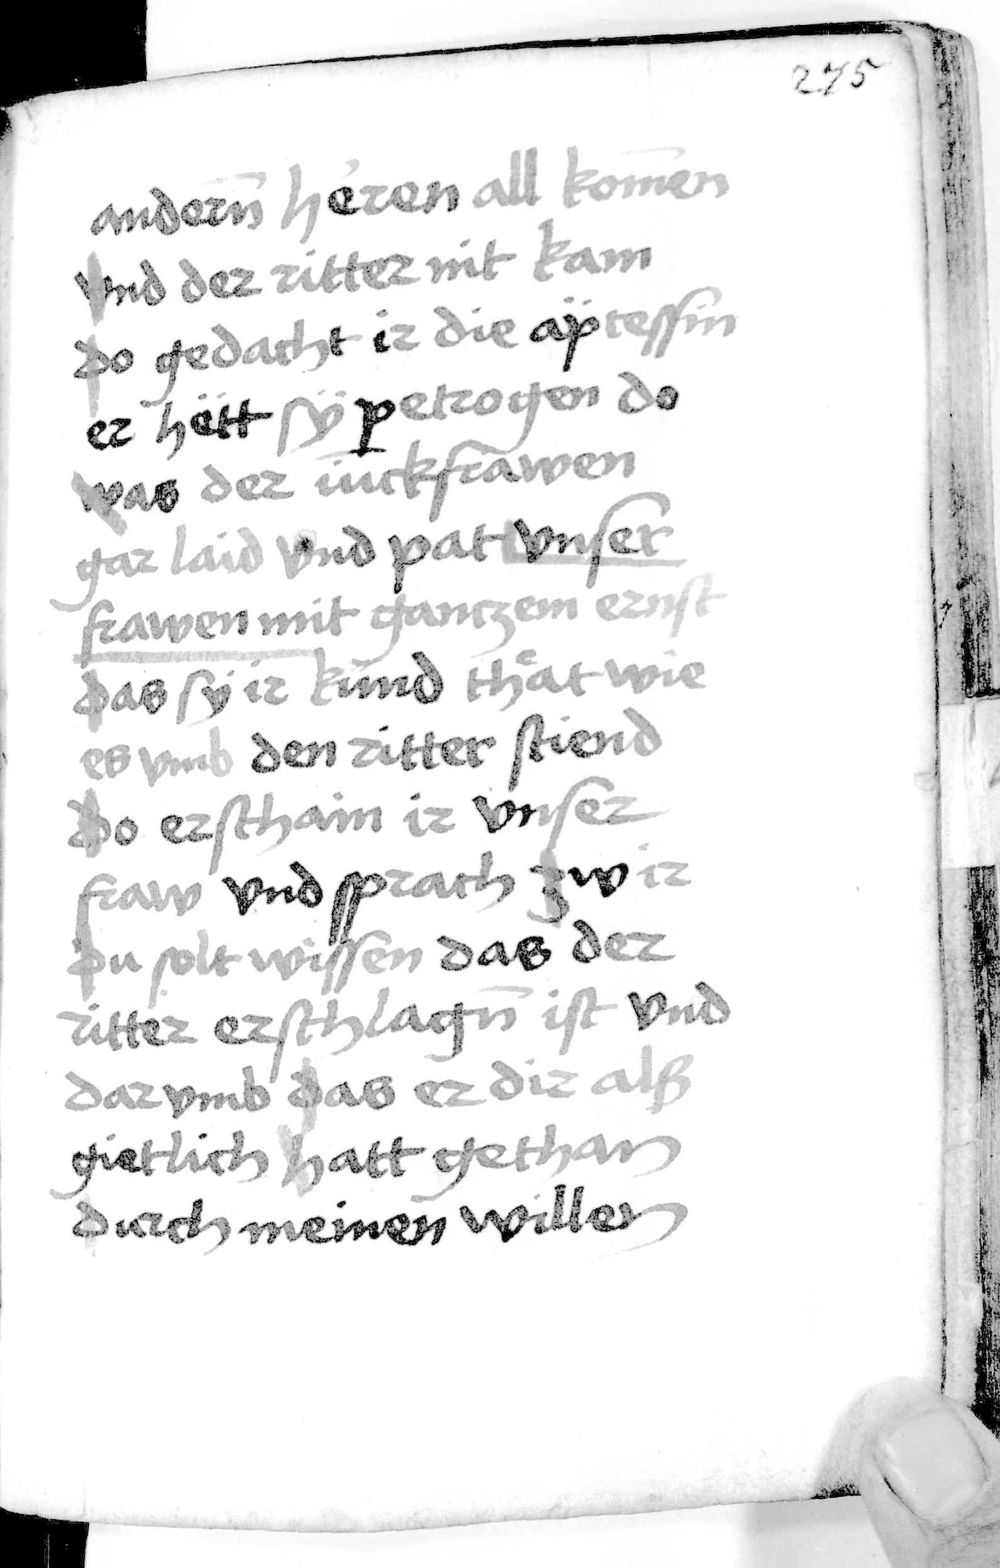 275
andern̄ heren all kom̄en
vnd der ritter nit kam
do gedacht ir die äptessin
er hëtt sÿ petrogen do
was der iuckfrawen
gar laid vnd pat vnser
frawen mit ganczem ernst
das sÿ ir kund thät wie
es vmb den ritter stiend
do erschain ir vnser
fraw vnd sprach zw ir
du solt wissen das der
ritter erschlagn̄ ist vnd
dar vmb das er dir alß
gietlich hatt gethan
durch meinen willen